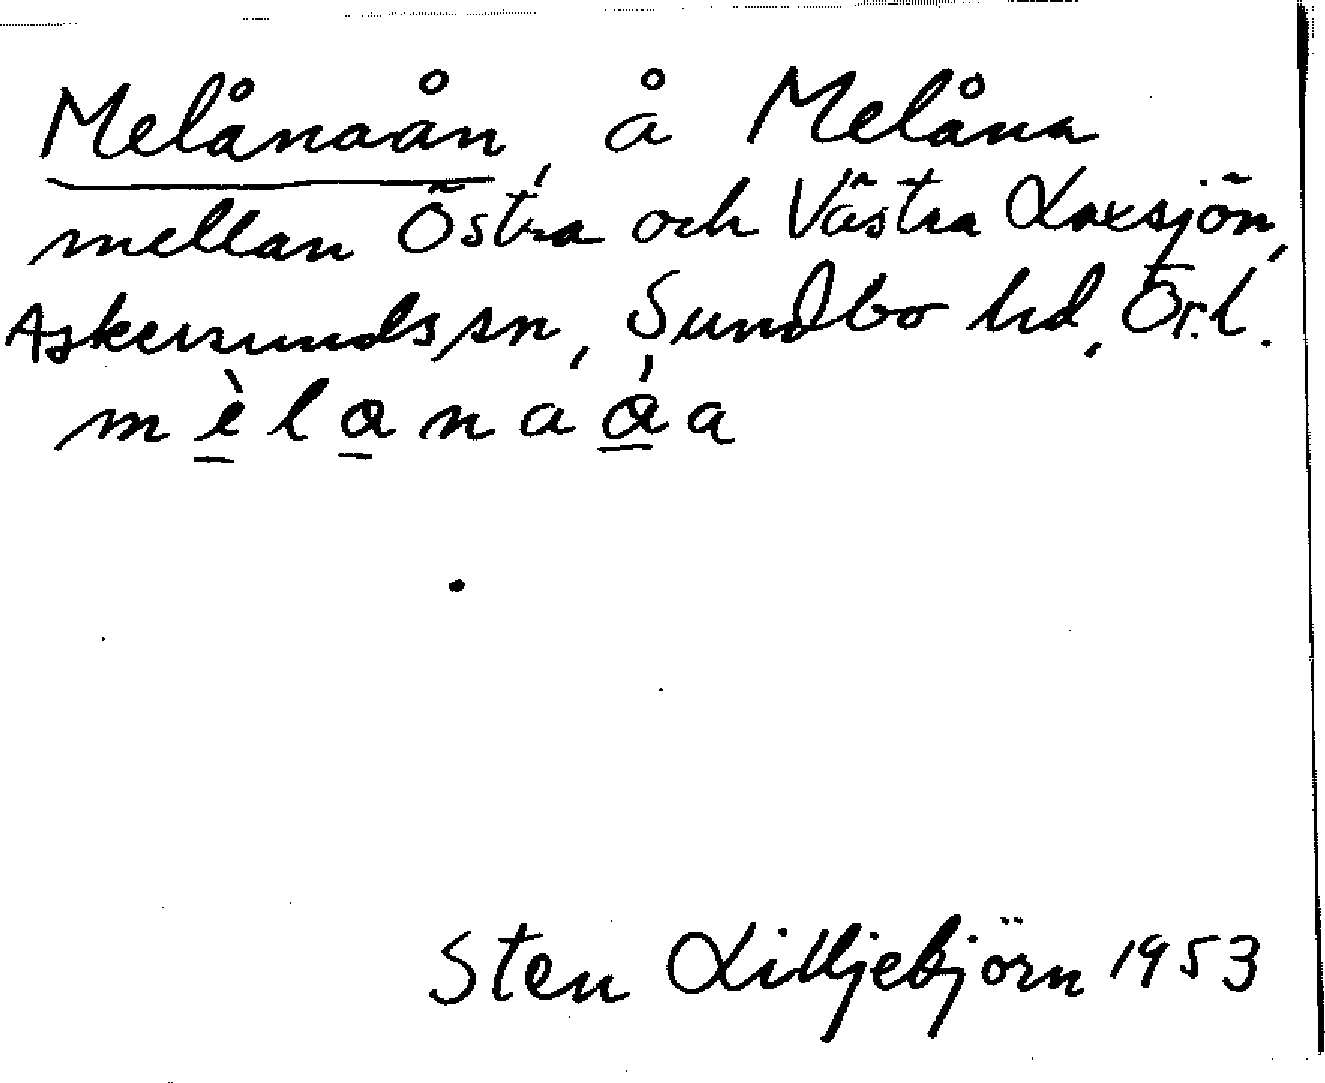 Melånaån, å Melåna
mellan Östra och Västra Laxsjön,
Askersunds sn, Sundbo hd, Ör.l.
m è l a n a á a
Sten Lilljebjörn 1953